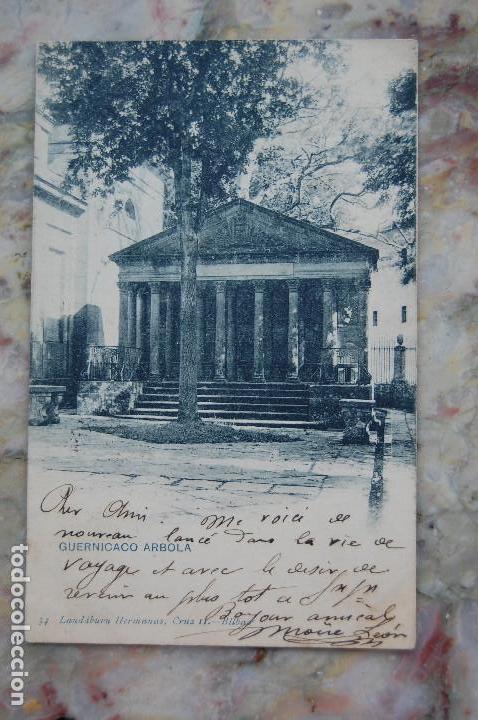 Cher Ami. Me voici de
nouveau lancé dans la vie de
GUERNICACO ARBOLA
voyage et avec le désir de
revenir au plus tot a
Bonjour amical
34 Landáburu Hermanas, Cruz 11.—Bilbao
León
todocoleccion.net